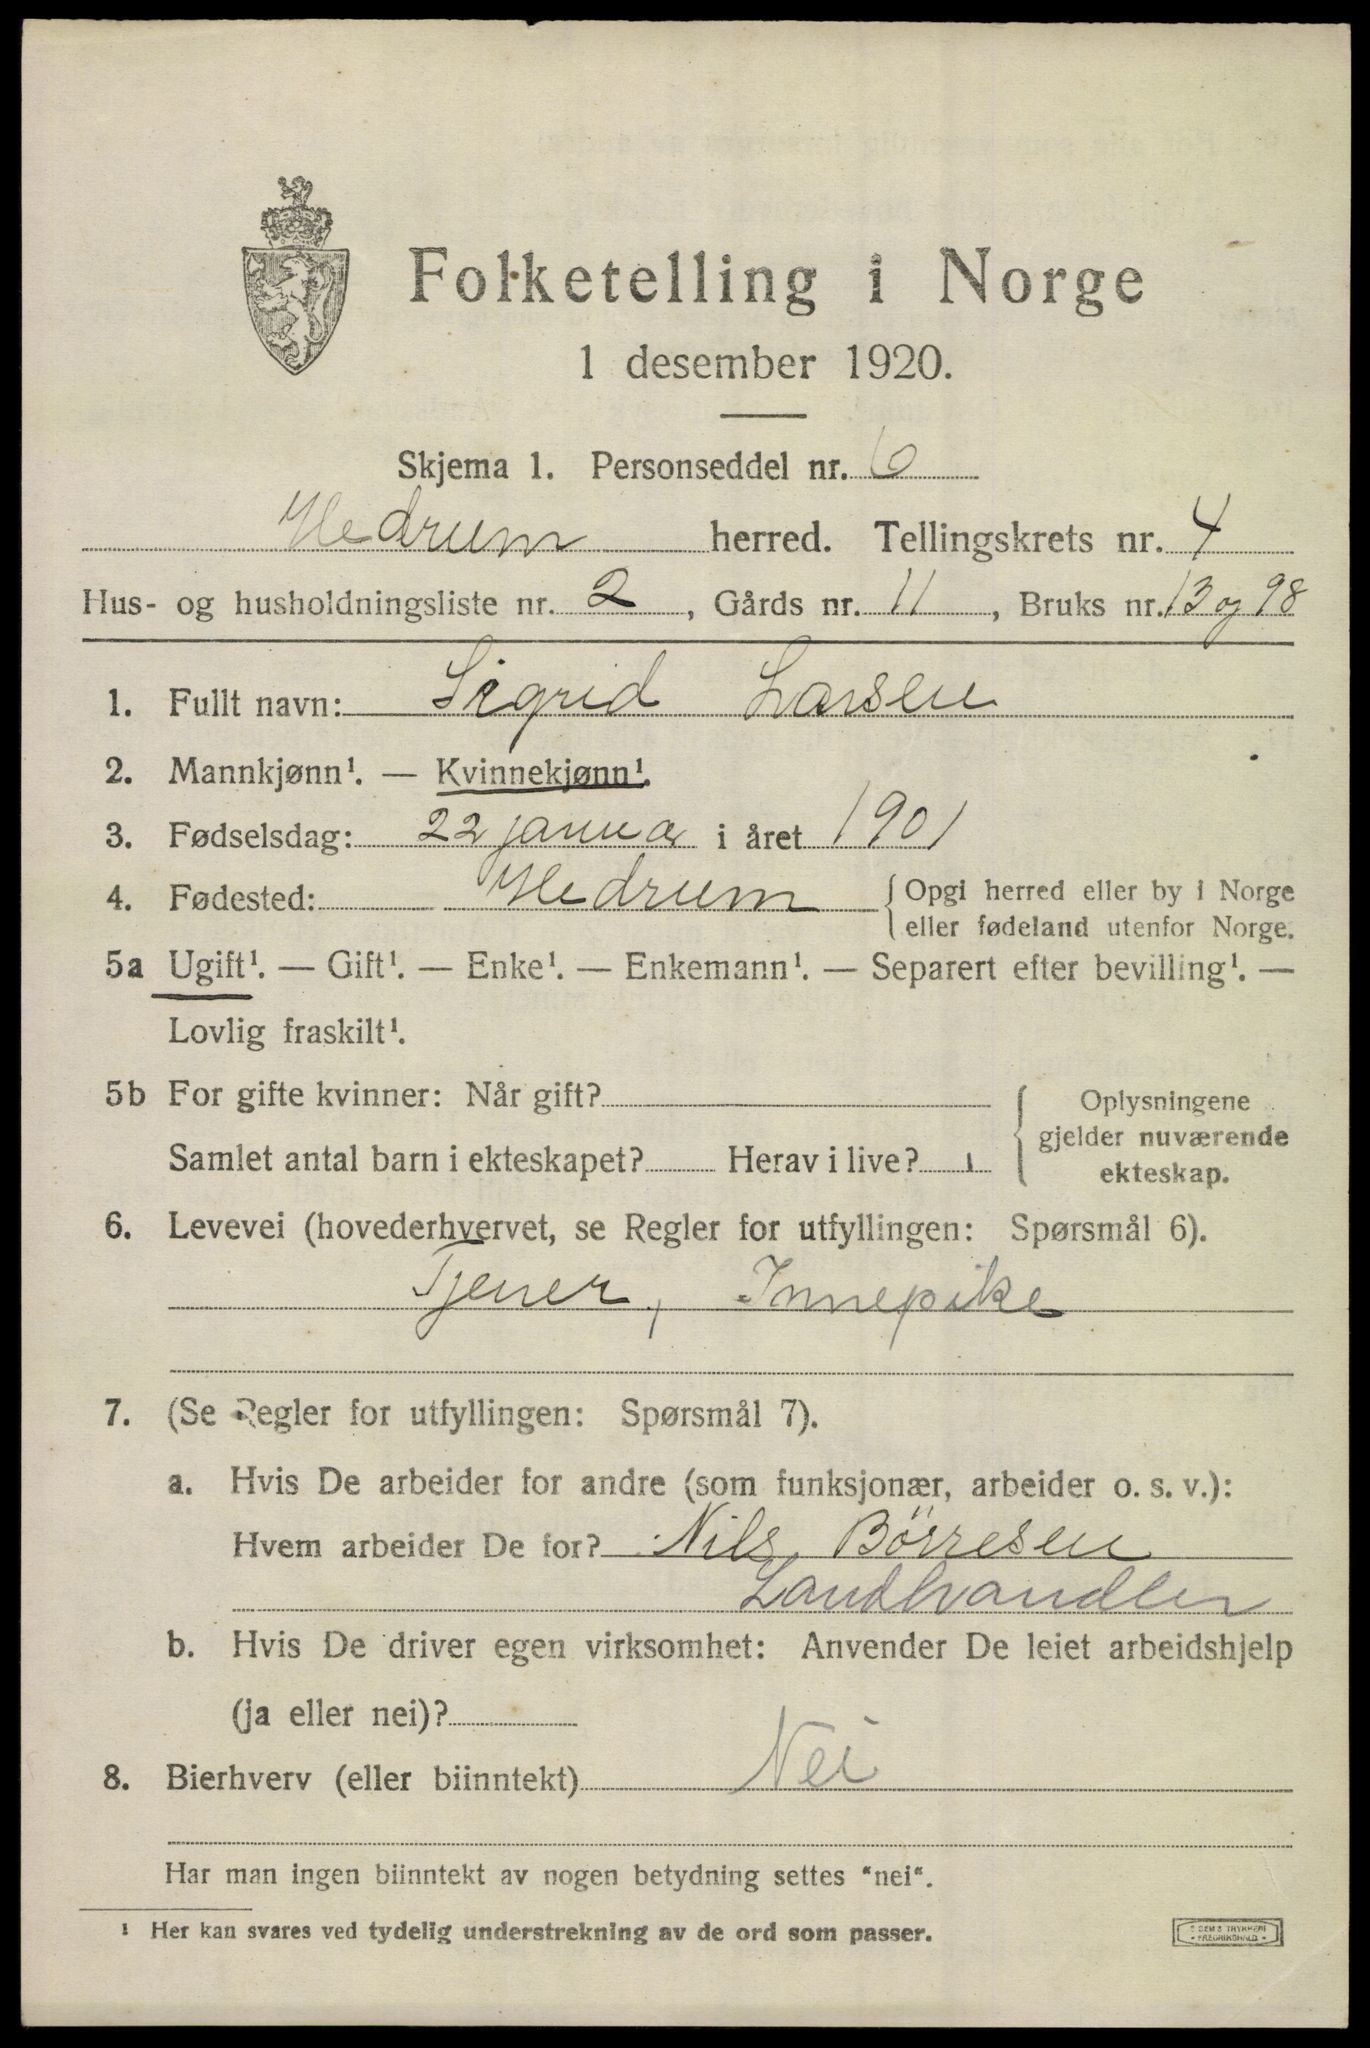 Folketelling i Norge
1 desember 1920.
Skjema 1. Personseddel nr. 6
Hedrum herred. Tellingskrets nr. 4
Hus- og husholdningsliste nr. 2, Gårds nr. 11, Bruks nr. 13 og 98
1. Fullt navn: Sigrid Larsen
2. Mannkjønn¹. — Kvinnekjønn¹.
3. Fødselsdag: 22 janua i året 1901
4. Fødested: Hedrum { Opgi herred eller by i Norge
eller fødeland utenfor Norge.
5a Ugift¹. — Gift¹. — Enke¹. — Enkemann¹. — Separert efter bevilling¹. —
Lovlig fraskilt¹.
5b For gifte kvinner: Når gift?
Samlet antal barn i ekteskapet? Herav i live?
{ Oplysningene
gjelder nuværende
ekteskap.
6. Levevei (hovederhvervet, se Regler for utfyllingen: Spørsmål 6).
Tjener, Innepike
7. (Se Regler for utfyllingen: Spørsmål 7).
a. Hvis De arbeider for andre (som funksjonær, arbeider o. s. v.):
Hvem arbeider De for? Nils Börresen
Landhandler
b. Hvis De driver egen virksomhet: Anvender De leiet arbeidshjelp
(ja eller nei)?
8. Bierhverv (eller biinntekt) Nei
Har man ingen biinntekt av nogen betydning settes "nei".
¹ Her kan svares ved tydelig understrekning av de ord som passer.